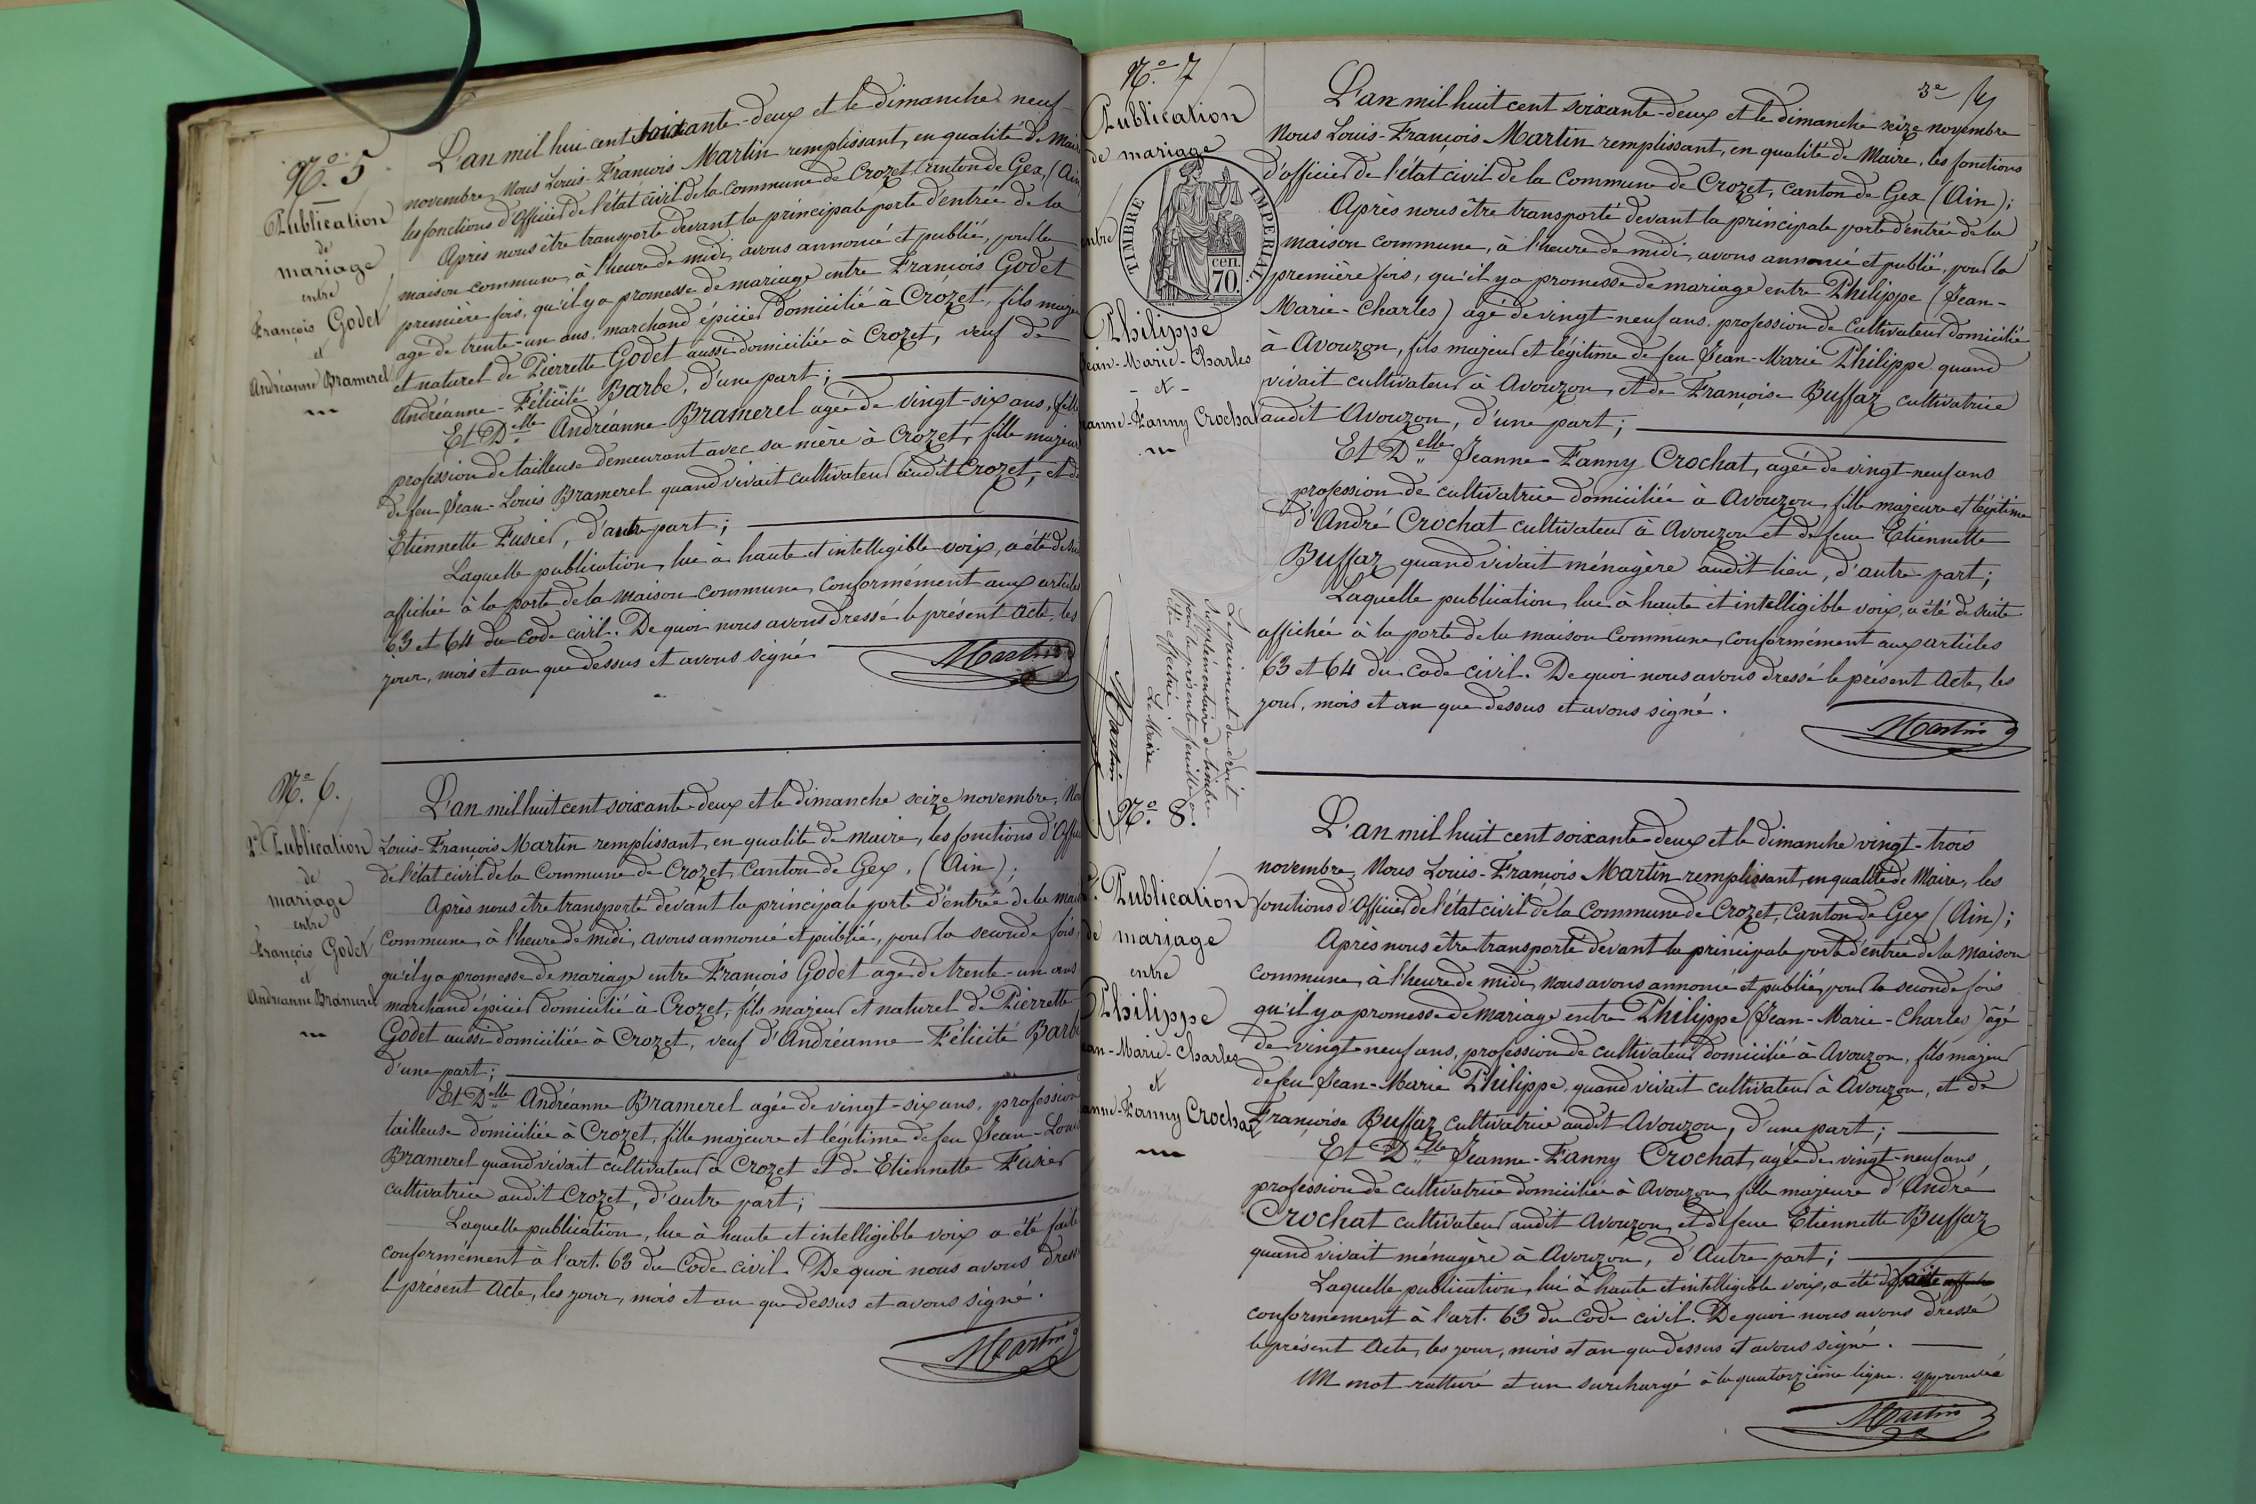 N.° 5
Publication
de
mariage
entre
François Godet
et
Andréanne Bramerel
L'an mil huit cent soixante-deux et le dimanche neuf
novembre, Nous Louis-François Martin remplissant, en qualité de Maire
les fonctions d'Officier de l'état civil de la Commune de Crozet, Canton de Gex, (Ain
Après nous être transporté devant la principale porte d'entrée de la
maison commune, à l'heure de midi, avons annoncé et publié, pour la
première fois, qu'il y a promesse de mariage entre François Godet
agé de trente-un ans, marchand épicier domicilié à Crozet, fils majeur
et naturel de Pierrette Godet aussi domiciliée à Crozet, veuf de
Andréanne-Félicité Barbe, d'une part;
Et Delle Andréanne Bramerel agée de vingt-six ans, fille
profession de tailleuse demeurant avec sa mère à Crozet, fille majeure
de feu Jean-Louis Bramerel quand vivait cultivateur audit Crozet, et de
Etiennette Fusier, d'autre part;
Laquelle publication, lue à haute et intelligible voix, a été de suite
affichée à la porte de la maison commune, conformément aux articles
63 et 64 du Code civil. De quoi nous avons dressé le présent Acte, les
jour, mois et an que dessus et avons signé
Martin
N.° 6.
2e Publication
de
mariage
entre
François Godet
et
Andréanne Bramerel
L'an mil huit cent soixante-deux et le dimanche seize novembre, Nous
Louis-François Martin remplissant, en qualité de Maire, les fonctions d'Officier
de l'état civil de la Commune de Crozet, Canton de Gex, (Ain);
Après nous être transporté devant la principale porte d'entrée de la maison
Commune, à l'heure de midi, avons annoncé et publié, pour la seconde fois,
qu'il y a promesse de mariage entre François Godet agé de trente-un ans
marchand épicier domicilié à Crozet, fils majeur et naturel de Pierrette
Godet aussi domiciliée à Crozet, veuf d'Andréanne-Félicité Barbe
d'une part;
Et Delle Andréanne Bramerel agée de vingt-six ans, profession
tailleuse domiciliée à Crozet, fille majeure et légitime de feu Jean-Louis
Bramerel quand vivait cultivateur à Crozet et de Etiennette Fusier
cultivatrice audit Crozet, d'autre part;
Laquelle publication, lue à haute et intelligible voix a été faite
conformément à l'art. 63 du Code civil. De quoi nous avons dressé
le présent Acte, les jour, mois et an que dessus et avons signé.
Martin
3e
N.° 7
Publication
de mariage
entre
TIMBRE IMPERIAL
70 cen.
Philippe
Jean-Marie-Charles
- et -
Jeanne-Fanny Crochat
L'an mil huit cent soixante-deux et le dimanche seize novembre
Nous Louis-François Martin remplissant, en qualité de Maire, les fonctions
d'officier de l'état civil de la Commune de Crozet, canton de Gex (Ain);
Après nous être transporté devant la principale porte d'entrée de la
maison commune, à l'heure de midi, avons annoncé et publié, pour la
première fois, qu'il y a promesse de mariage entre Philippe (Jean-
Marie-Charles) agé de vingt-neuf ans, profession de Cultivateur domicilié
à Avouzon, fils majeur et légitime de feu Jean-Marie Philippe quand
vivait cultivateur à Avouzon, et de Françoise Buffaz cultivatrice
audit Avouzon, d'une part;
Et Delle Jeanne-Fanny Crochat, agée de vingt-neuf ans
profession de cultivatrice domiciliée à Avouzon, fille majeure et légitime
d'André Crochat cultivateur à Avouzon et de feue Etiennette
Buffaz quand vivait ménagère audit lieu, d'autre part;
Laquelle publication, lue à haute et intelligible voix, a été de suite
affichée à la porte de la maison Commune, conformément aux articles
63 et 64 du code civil. De quoi nous avons dressé le présent Acte, les
jour, mois et an que dessus et avons signé.
Martin
Le paiement du droit
supplémentaire de timbre
pour la présente feuille a
été effectué.
Le Maire
Martin
N.° 8.
2e Publication
de mariage
entre
Philippe
Jean-Marie-Charles
et
Jeanne-Fanny Crochat
L'an mil huit cent soixante-deux et le dimanche vingt-trois
novembre, Nous Louis-François Martin remplissant, en qualité de Maire, les
fonctions d'Officier de l'état civil de la Commune de Crozet, Canton de Gex (Ain);
Après nous être transporté devant la principale porte d'entrée de la maison
commune, à l'heure de midi, nous avons annoncé et publié, pour la seconde fois
qu'il y a promesse de mariage entre Philippe (Jean-Marie-Charles) âgé
de vingt-neuf ans, profession de cultivateur domicilié à Avouzon, fils majeur
de feu Jean-Marie Philippe, quand vivait cultivateur à Avouzon, et de
Françoise Buffaz cultivatrice audit Avouzon, d'une part;
Et Delle Jeanne-Fanny Crochat, agée de vingt-neuf ans,
profession de cultivatrice domiciliée à Avouzon, fille majeure d'André
Crochat cultivateur audit Avouzon, et de feue Etiennette Buffaz
quand vivait ménagère à Avouzon, d'Autre part;
Laquelle publication, lue à haute et intelligible voix, a été faite
conformément à l'art. 63 du Code civil. De quoi nous avons dressé
le présent Acte, les jour, mois et an que dessus et avons signé.
Un mot raturé et un surchargé à la quatorzième ligne. approuvé
Martin